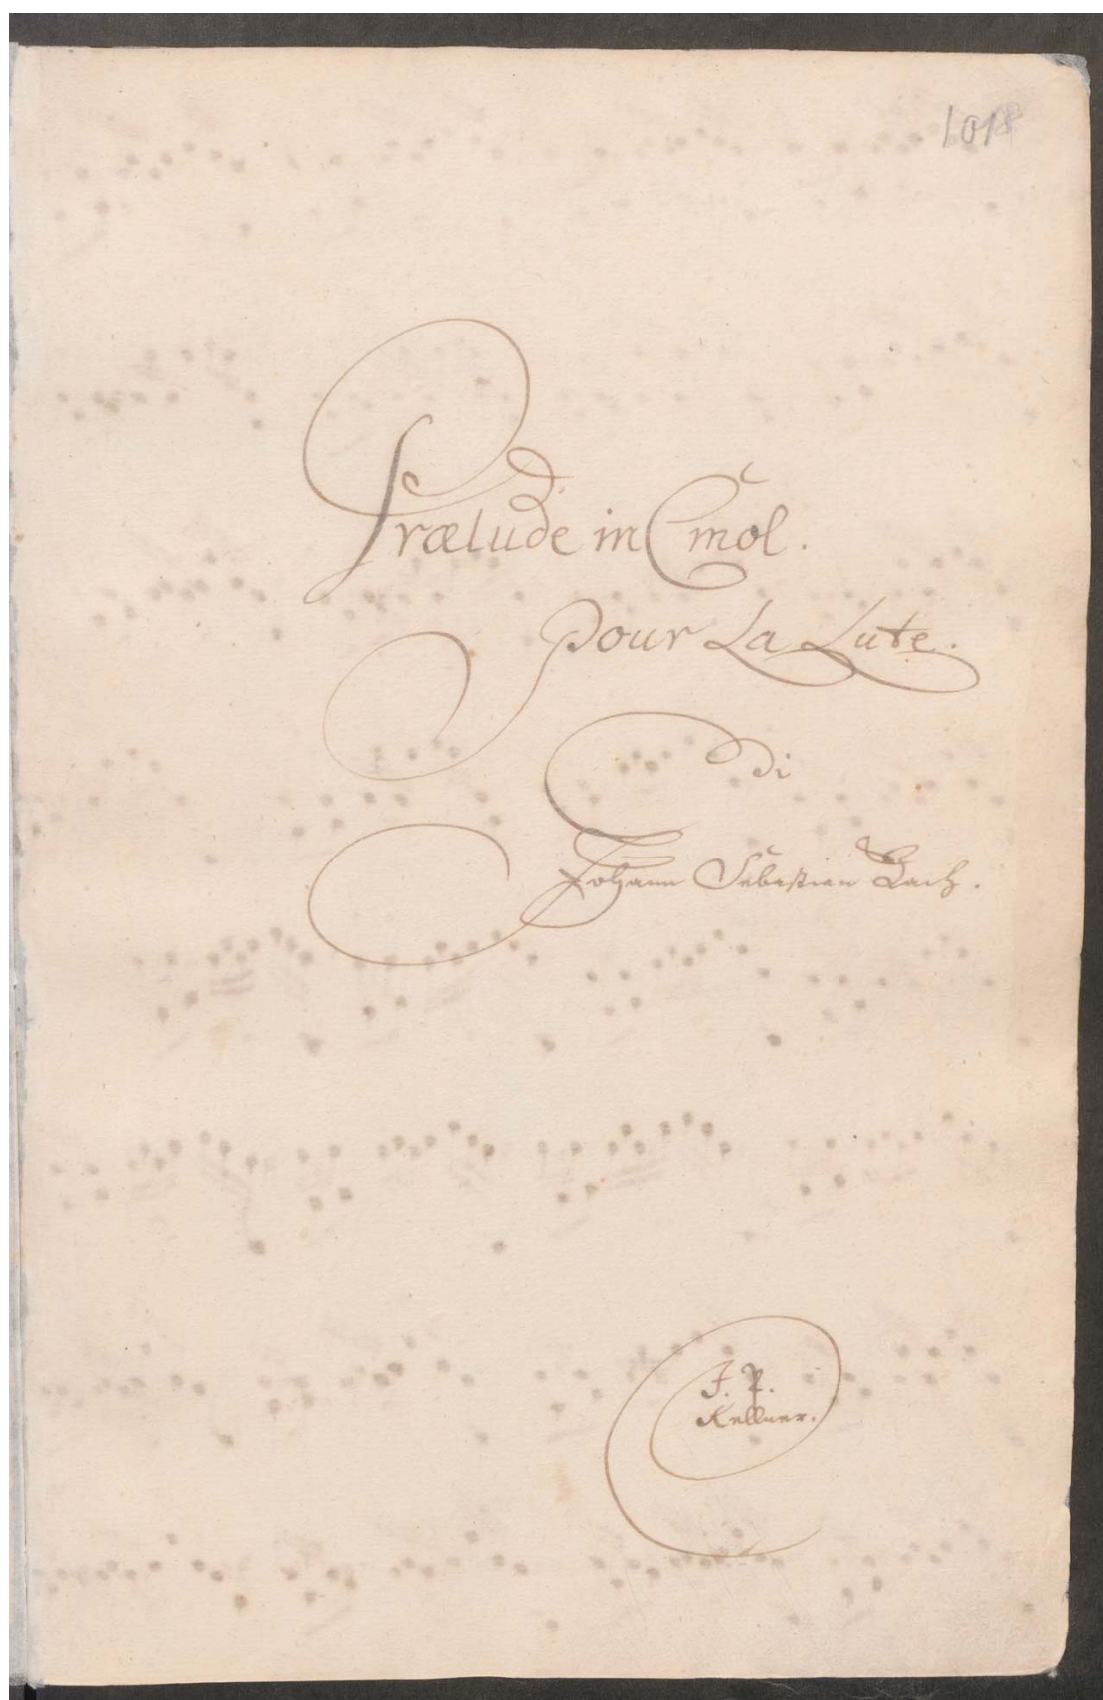 Prælude in C mol.
pour La Lute.
di
Johann Sebastian Bach.
J. P.
Kellner.